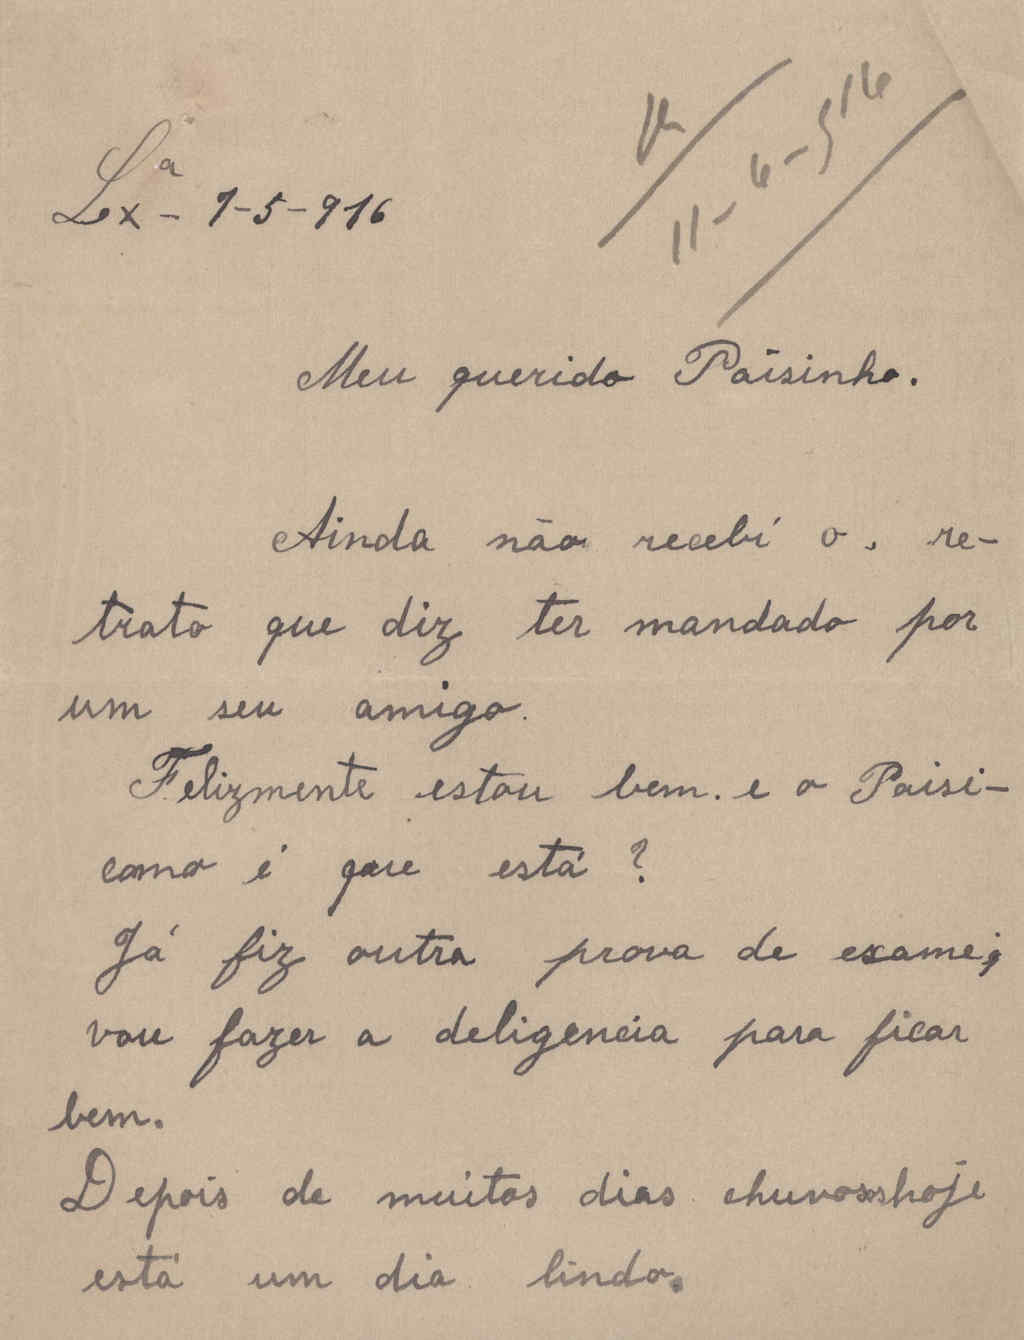 Lxª - 7-5-916
11-6-916
Meu querido Paisinho.
Ainda não recebi o re-
trato que diz ter mandado por
um seu amigo.
Felizmente estou bem. e o Paisi-
como é que está ?
Já fiz outra prova de exame;
vou fazer a deligencia para ficar
bem.
Depois de muitos dias chuvosos hoje
está um dia lindo.